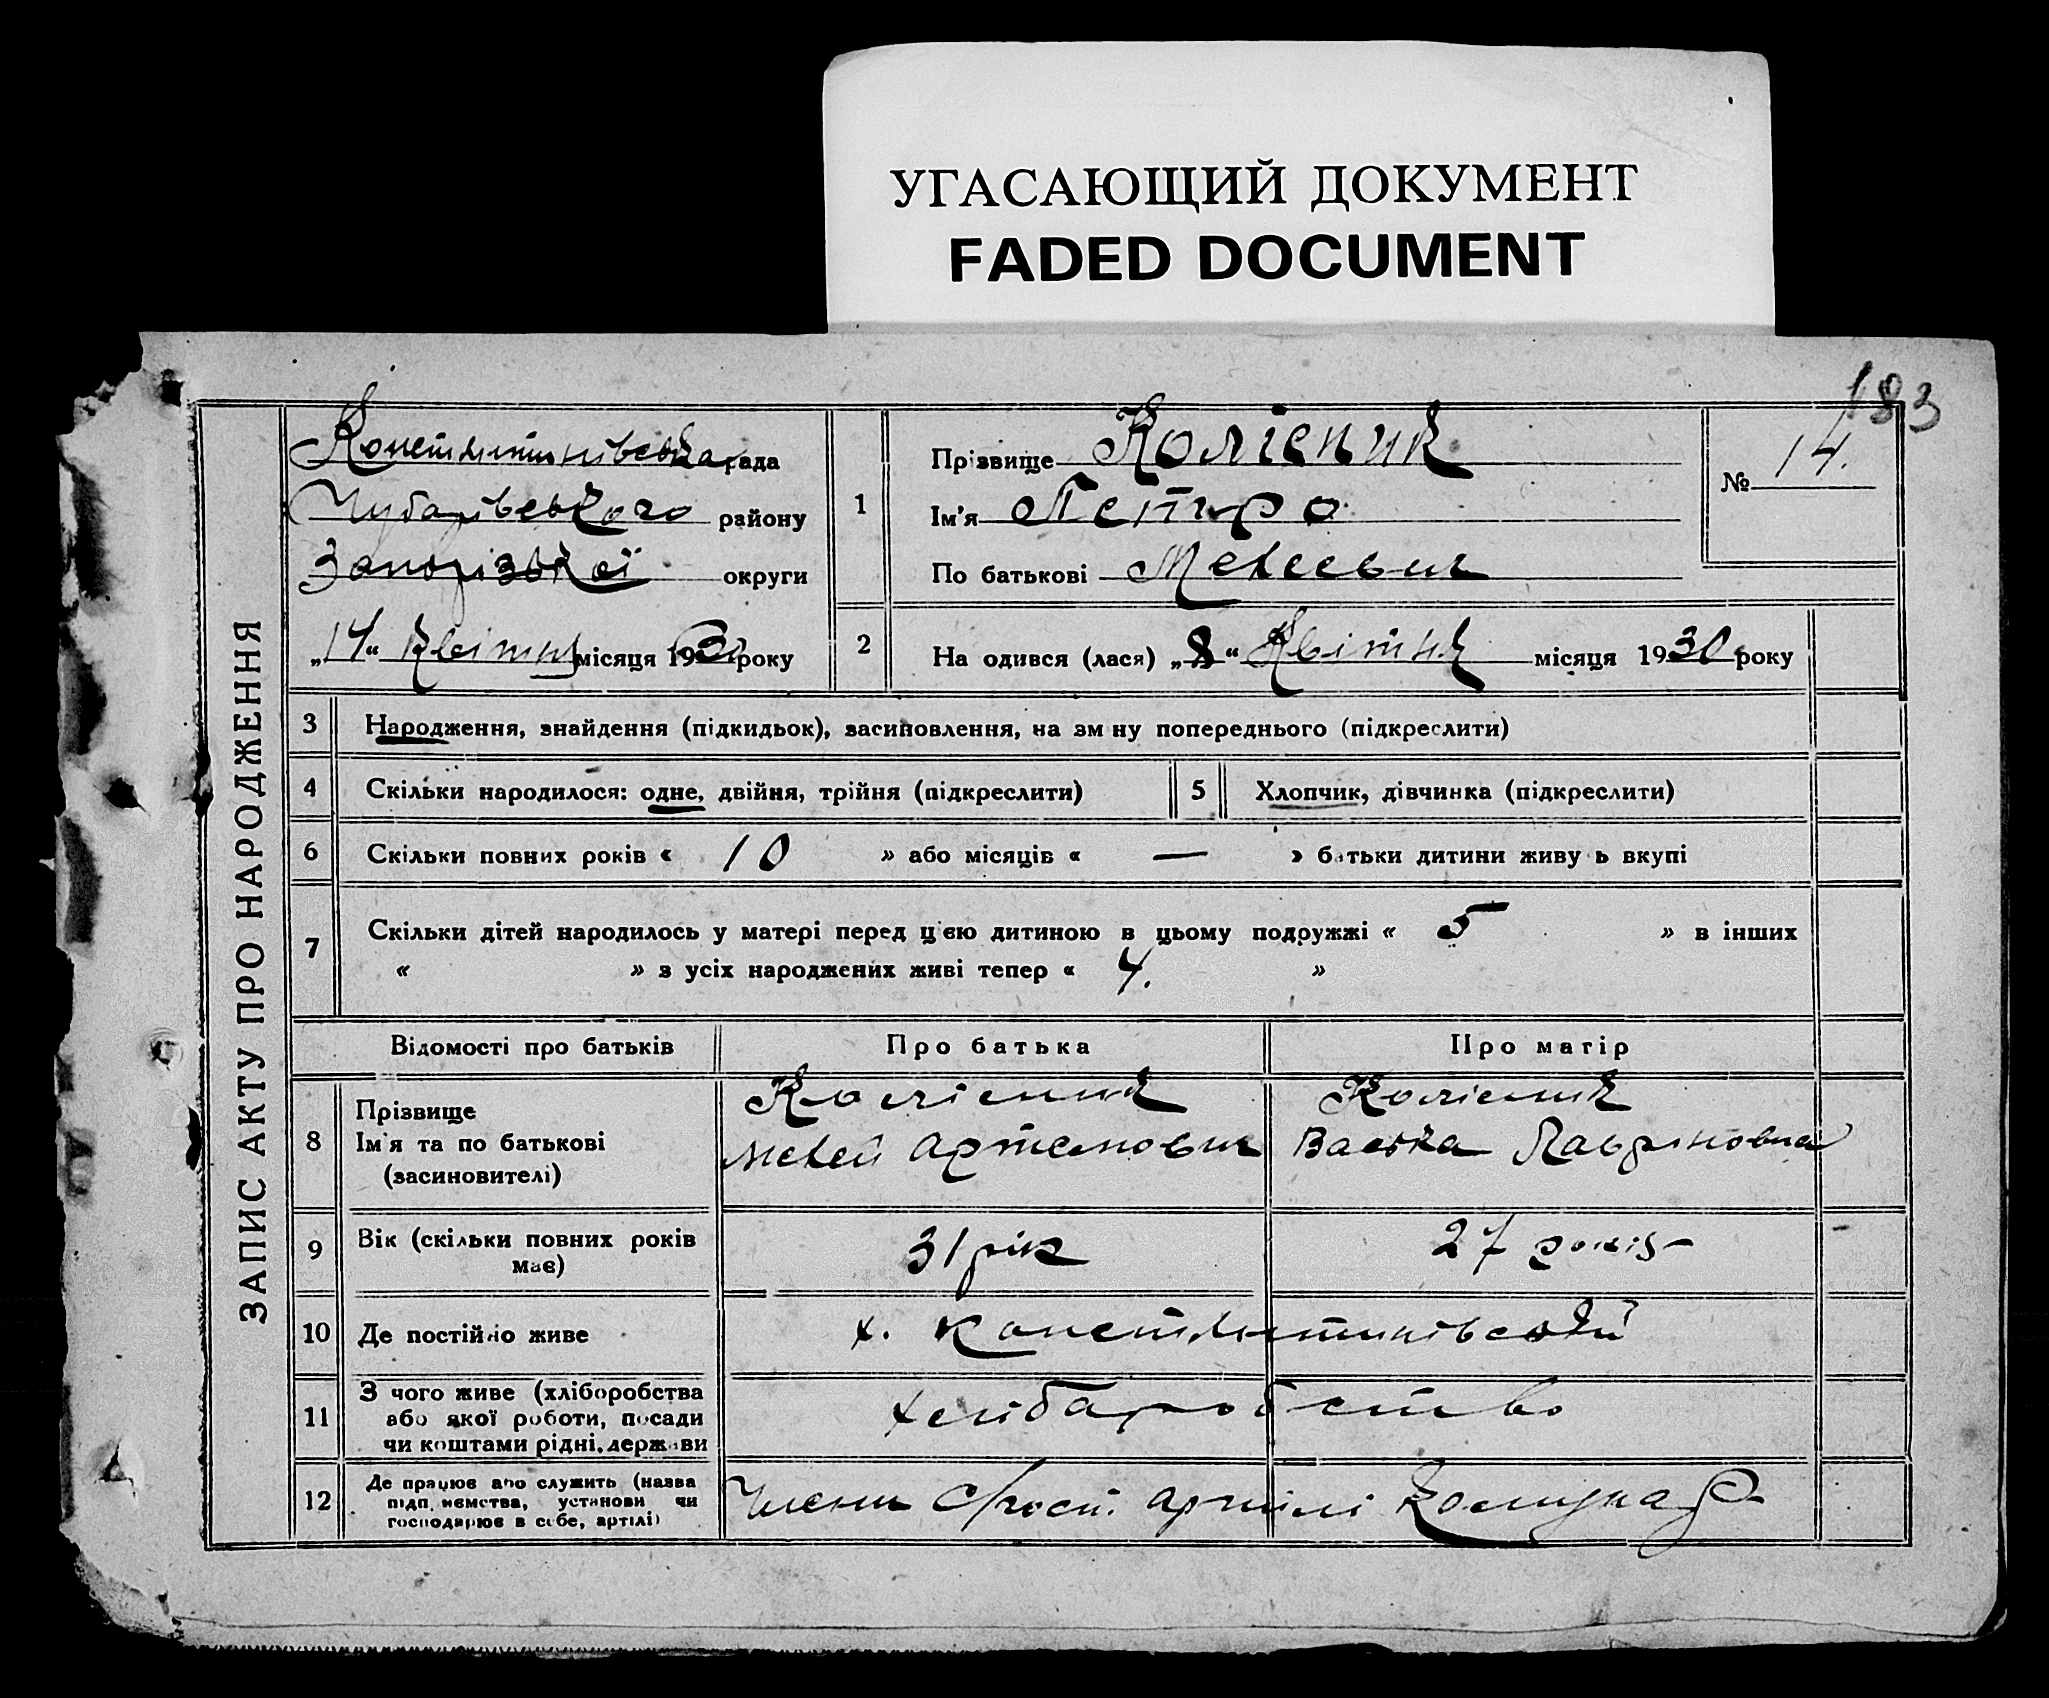 УГАСАЮЩИЙ ДОКУМЕНТ
FADED DOCUMENT
183
ЗАПИС АКТУ ПРО НАРОДЖЕННЯ
Констянтинівська рада
Чубарівського району
Запорізької округи
„14“ Квітня місяця 1930 року
1
Прізвище Колісник
Ім'я Петро
По батькові
№ 14.
2
На одився (лася) „8“ Квітня місяця 1930 року
3 Народження, знайдення (підкидьок), засиновлення, на зм ну попереднього (підкреслити)
4 Скільки народилося: одне, двійня, трійня (підкреслити)
5 Хлопчик, дівчинка (підкреслити)
6 Скільки повних років « 10 » або місяців « — » батьки дитини живу ь вкупі
7 Скільки дітей народилось у матері перед цєю дитиною в цьому подружжі « 5 » в інших
« » з усіх народжених живі тепер « 4. »
Відомості про батьків
Про батька
Про матір
8
Прізвище
Ім'я та по батькові
(засиновителі)
Колісник
Артемович
Колісник
Васька Лавриновна
9
Вік (скільки повних років
має)
31 рік
27 років
10 Де постійно живе
х. Констянтинівський
11
З чого живе (хліборобства
або якої роботи, посади
чи коштами рідні, держави
хлібаробство
12
Де працює або служить (назва
підп иємства, установи чи
господарює в себе, артілі)
Члени артілі Комунар